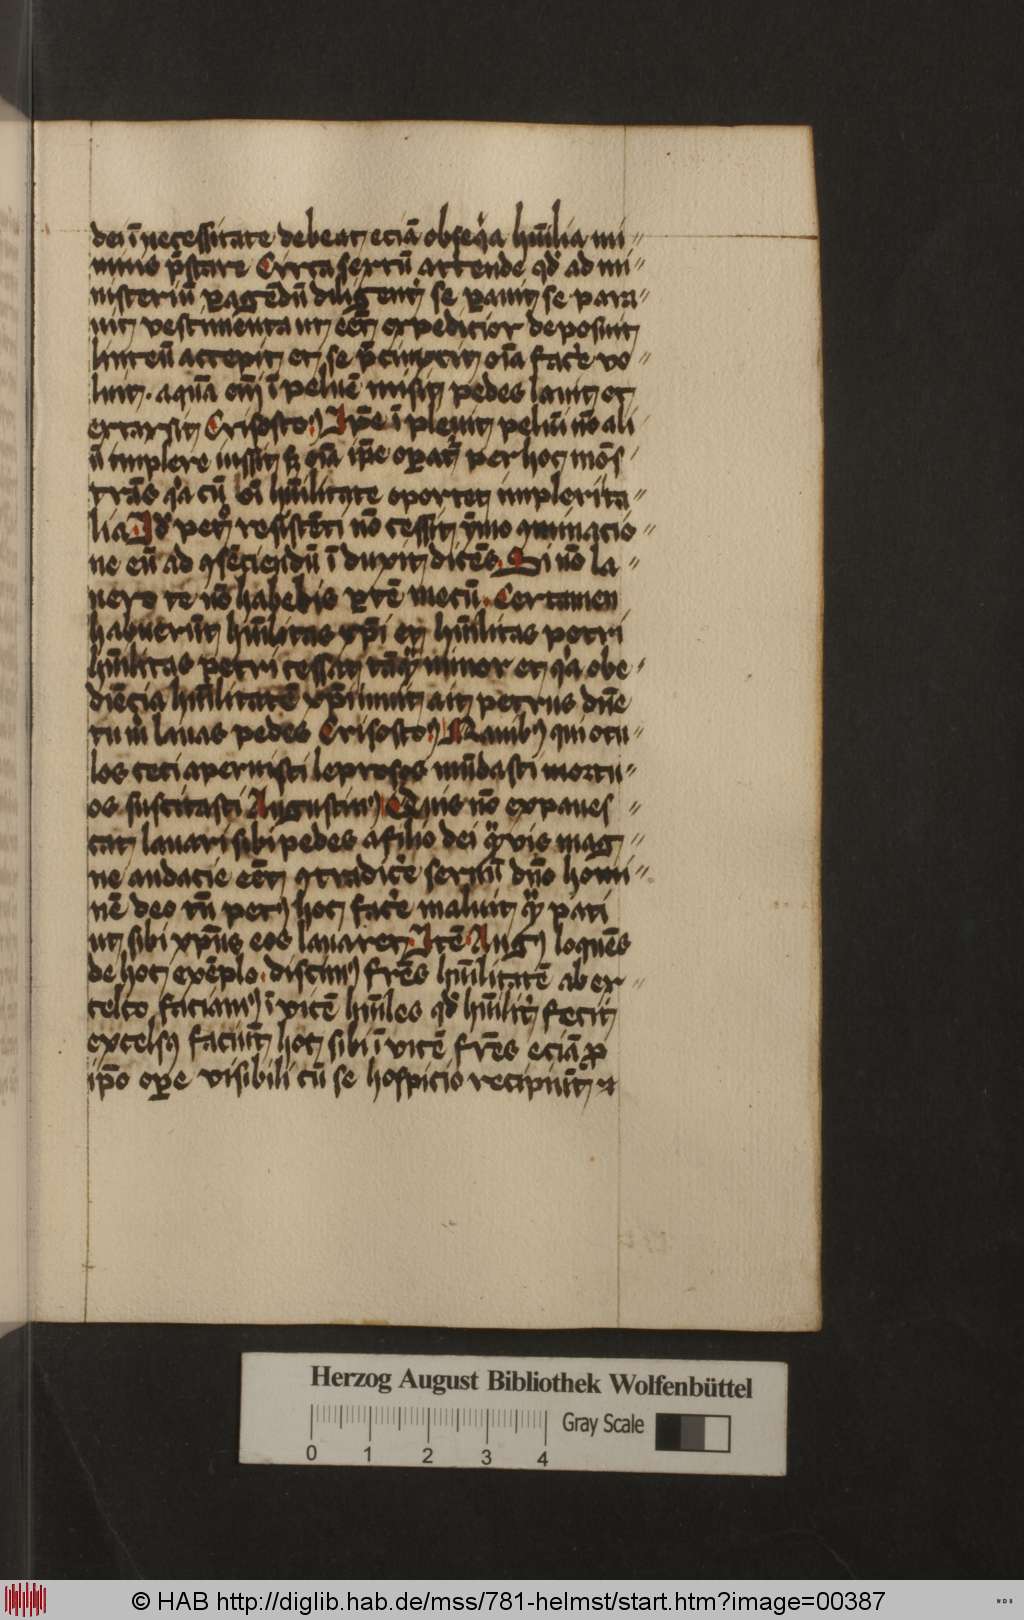 dei ī necessitate debeat eciā obseqͥa hūilia mi〃
nimis p̄stare Circa sextū attende qd̓ ad mi〃
nisteriū ꝑagēdū diligent̓ se ꝑauit se para〃
uit vestimenta ut eēt expedicior deposuit
linteū accepit et se p̄cinxit oīa fac̓e vo〃
luit . aquā em̄ ī peluē misit pedes lauit et
extersit Crisostoꝰ Ip̄e ī pleuit peluī nō ali
ū implere iussit sꝫ oīa ip̄e oꝑat̓ per hoc mōs〃
trās qͥa cū oī hūilitate oportet impleri ta〃
lia Id̓ petͦ resistēti nō cessit ẏmo ꝯminacio〃
ne eū ad ꝯsēciendū ī duxit dicēs. Si nō la〃
uero te nō habebis ꝑtē mecū . Certamen
habuerūt hūilitas xp̄i et hūilitas petri
hūilitas petri cessit tāqͣ minor et qͥa obe〃
diēcia hūilitatē
ait petrus dn̄e
tu m̓ lauas pedes Crisostoꝰ Manibꝰ qui ocu〃
los ceci aperuisti leprosos mūdasti mortu〃
os suscitasti Augustinꝰ Quis nō expaues〃
cat lauari sibi pedes a filio dei qͣvis mag〃
ne audacie eēt ꝯtradic̓e seruū dn̄o homi〃
nē deo tn̄ petꝰ hoc fac̓e maluit qͣ pati
ut sibi xp̄us eos lauaret. Itē Augꝰ loquēs
de hoc exēplo . discimꝰ fr̄es hūilitatē ab ex〃
celso faciamꝰ ī vicē hūiles qd̓ hūilit̓ fecit
excelsꝰ faciūt hoc sibi ī vicē fr̄es eciā ꝓ
ip̄o oꝑe visibili cū se hospicio recipiūt
Herzog August Bibliothek Wolfenbüttel
Gray Scale
0 1 2 3 4
© HAB http://diglib.hab.de/mss/781-helmst/start.htm?image=00387